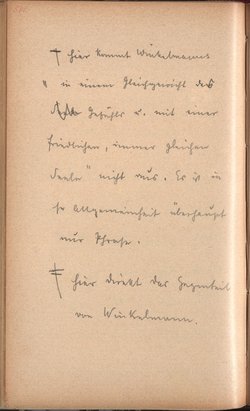 † hier kommt Winkelmanns
"in einem Gleichgewicht des
Gefühls u. mit einer
friedlichen, immer gleichen
Seele" nicht aus. Es ist in
so Allgemeinheit überhaupt
nur Phrase.
‡ hier direkt das Gegenteil
von Winkelmann.